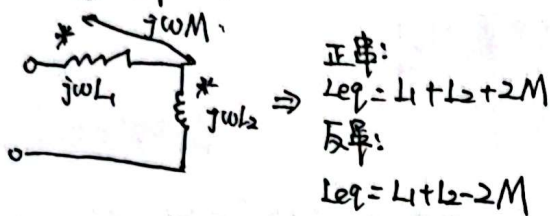 * jωM
jωL₁
* jωL₂
⇒
正串:
Leq = L₁+L₂+2M
反串:
Leq = L₁+L₂-2M